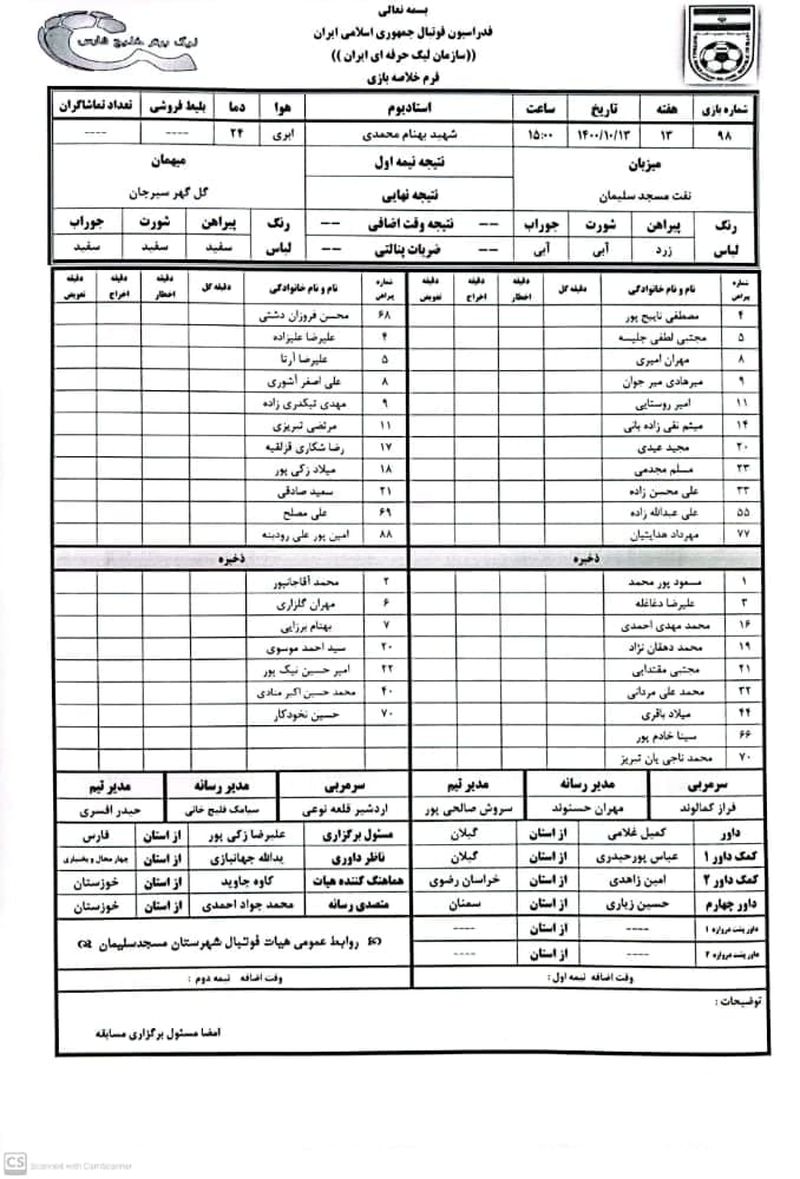 بسمه تعالی
فدراسیون فوتبال جمهوری اسلامی ایران
((سازمان لیگ حرفه ای ایران))
فرم خلاصه بازی
لیگ برتر خلیج فارس
شماره بازی هفته تاریخ ساعت استادیوم هوا دما بلیط فروشی تعداد تماشاگران
۹۸ ۱۳ ۱۴۰۰/۱۰/۱۳ ۱۵:۰۰ شهید بهنام محمدی ابری ۲۴ ---- ----
میزبان نتیجه نیمه اول میهمان
نفت مسجد سلیمان نتیجه نهایی گل گهر سیرجان
رنگ پیراهن شورت جوراب -- نتیجه وقت اضافی -- رنگ پیراهن شورت جوراب
لباس زرد آبی آبی -- ضربات پنالتی -- لباس سفید سفید سفید
شماره پیراهن نام و نام خانوادگی دقیقه گل دقیقه اخطار دقیقه اخراج دقیقه تعویض شماره پیراهن نام و نام خانوادگی دقیقه گل دقیقه اخطار دقیقه اخراج دقیقه تعویض
۴ مصطفی ناییج پور ۶۸ محسن فروزان دشتی
۵ مجتبی لطفی جلیسه ۴ علیرضا علیزاده
۸ مهران امیری ۵ علیرضا آرتا
۹ میرهادی میر جوان ۸ علی اصغر آشوری
۱۱ امیر روستایی ۹ مهدی تیکدری زاده
۱۴ میثم نقی زاده بانی ۱۱ مرتضی تبریزی
۲۰ مجید عیدی ۱۷ رضا شکاری قزلقیه
۲۳ مسلم مجدمی ۱۸ میلاد زکی پور
۳۳ علی محسن زاده ۲۱ سعید صادقی
۵۵ علی عبدالله زاده ۶۹ علی مصلح
۷۷ مهرداد هدایتیان ۸۸ امین پور علی رودبنه
ذخیره ذخیره
۱ مسعود پور محمد ۲ محمد آقاجانپور
۳ علیرضا دغاغله ۶ مهران گلزاری
۱۶ محمد مهدی احمدی ۷ بهنام برزایی
۱۹ محمد دهقان نژاد ۲۰ سید احمد موسوی
۲۱ مجتبی مقتدایی ۲۲ امیر حسین نیک پور
۳۲ محمد علی مردانی ۴۰ محمد حسین اکبر منادی
۴۴ میلاد باقری ۷۰ حسین نخودکار
۶۶ سینا خادم پور
۷۰ محمد ناجی یان تبریز
سرمربی مدیر رسانه مدیر تیم سرمربی مدیر رسانه مدیر تیم
فراز کمالوند مهران حسنوند سروش صالحی پور اردشیر قلعه نوعی سیامک قلیچ خانی حیدر افسری
داور کمیل غلامی از استان گیلان مسئول برگزاری علیرضا زکی پور از استان فارس
کمک داور ۱ عباس پورحیدری از استان گیلان ناظر داوری یدالله جهانبازی از استان چهار محال و بختیاری
کمک داور ۲ امین زاهدی از استان خراسان رضوی هماهنگ کننده هیات کاوه جاوید از استان خوزستان
داور چهارم حسین زیاری از استان سمنان متصدی رسانه محمد جواد احمدی از استان خوزستان
داور پشت دروازه ۱ ---- از استان ----
داور پشت دروازه ۲ ---- از استان ----
روابط عمومی هیات فوتبال شهرستان مسجدسلیمان
وقت اضافه نیمه اول : وقت اضافه نیمه دوم :
توضیحات :
امضا مسئول برگزاری مسابقه
CS Scanned with CamScanner